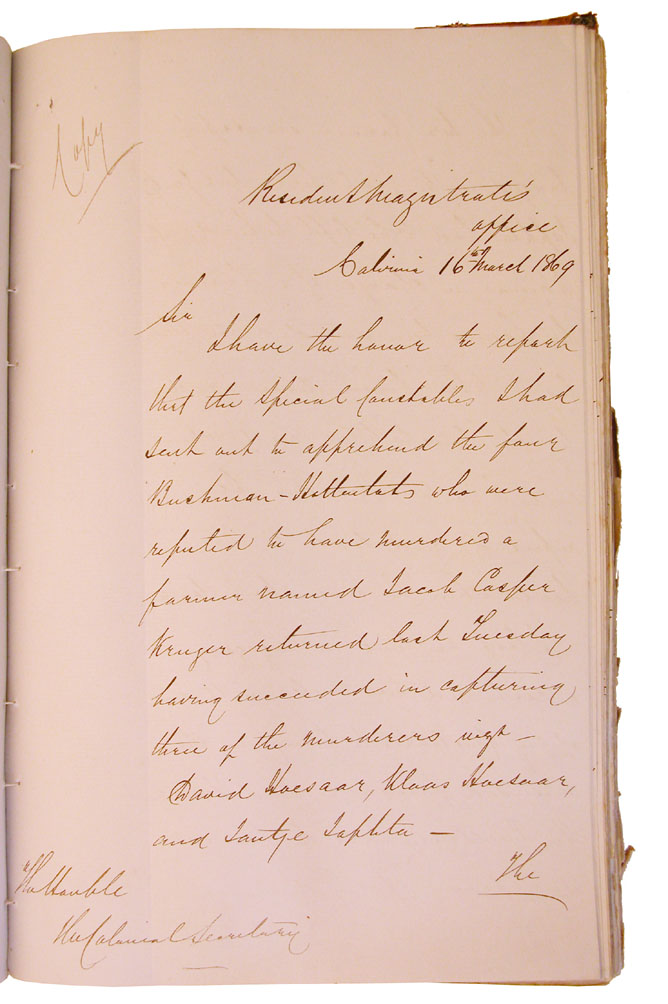 Copy
Resident Magistrate's
office
Calvinia 16th March 1869
Sir
I have the honor to report
that the Special Constables I had
sent out to apprehend the four
Bushman-Hottentots who were
reputed to have murdered a
farmer named Jacob Casper
Kruger returned last Tuesday
having succeeded in capturing
three of the murderers vizt –
David Hoesaar, Klaas Hoesaar,
and Jantje –
The
The Honble
The Colonial Secretary